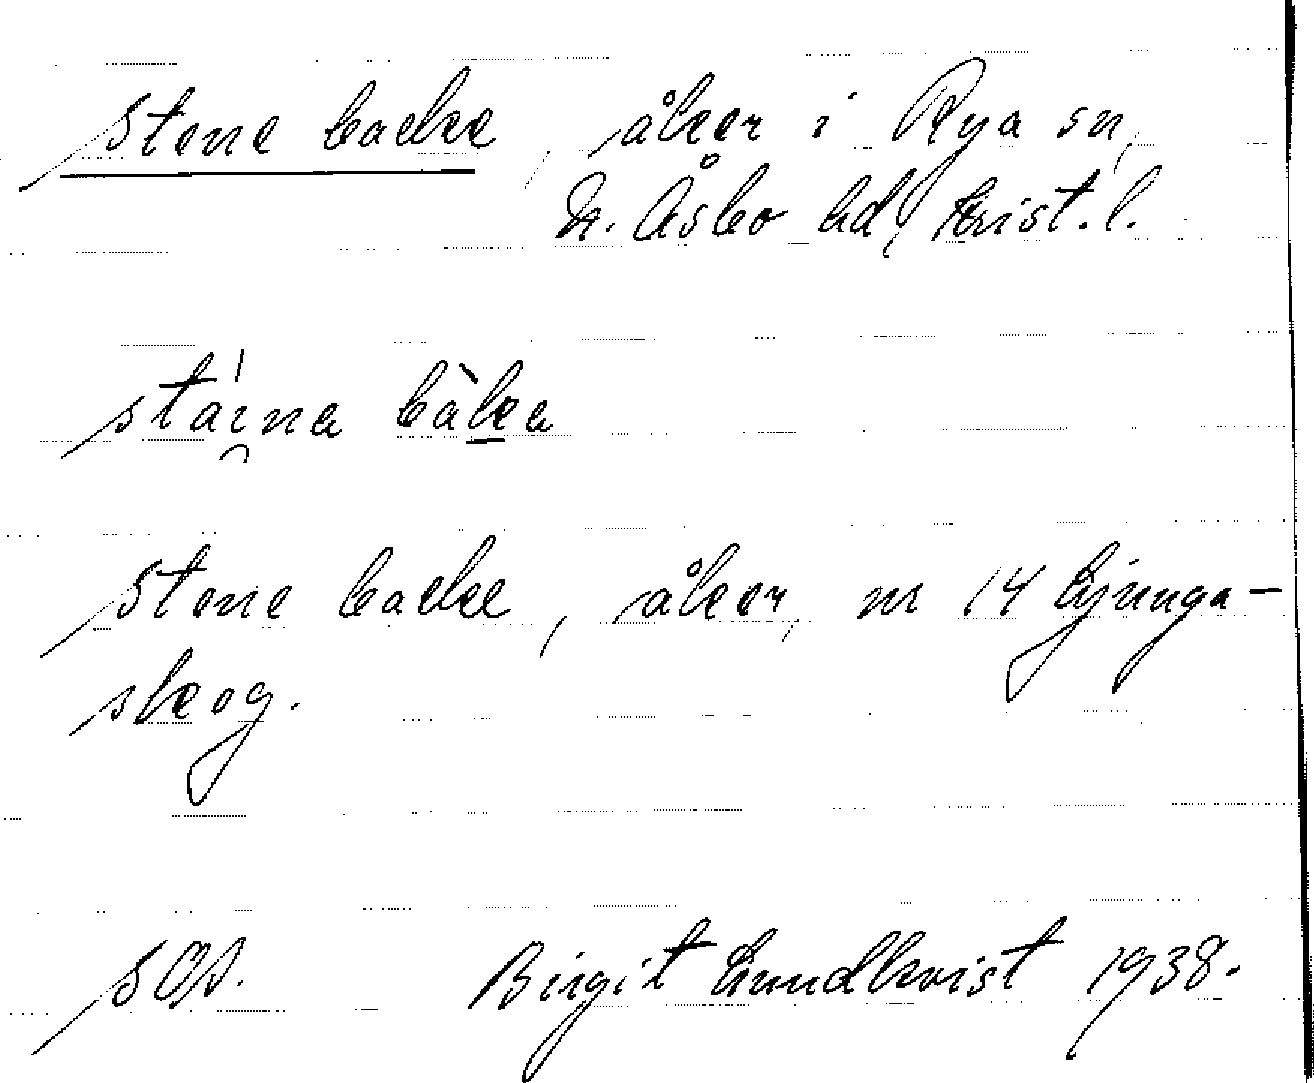 Stene backe, åker i Rya sn,
N. Åsbo hd, Krist. l.
stai̯na bàka
Stene backe, åker, nr 14 Ljunga-
skog.
Birgit Lundkvist 1938.